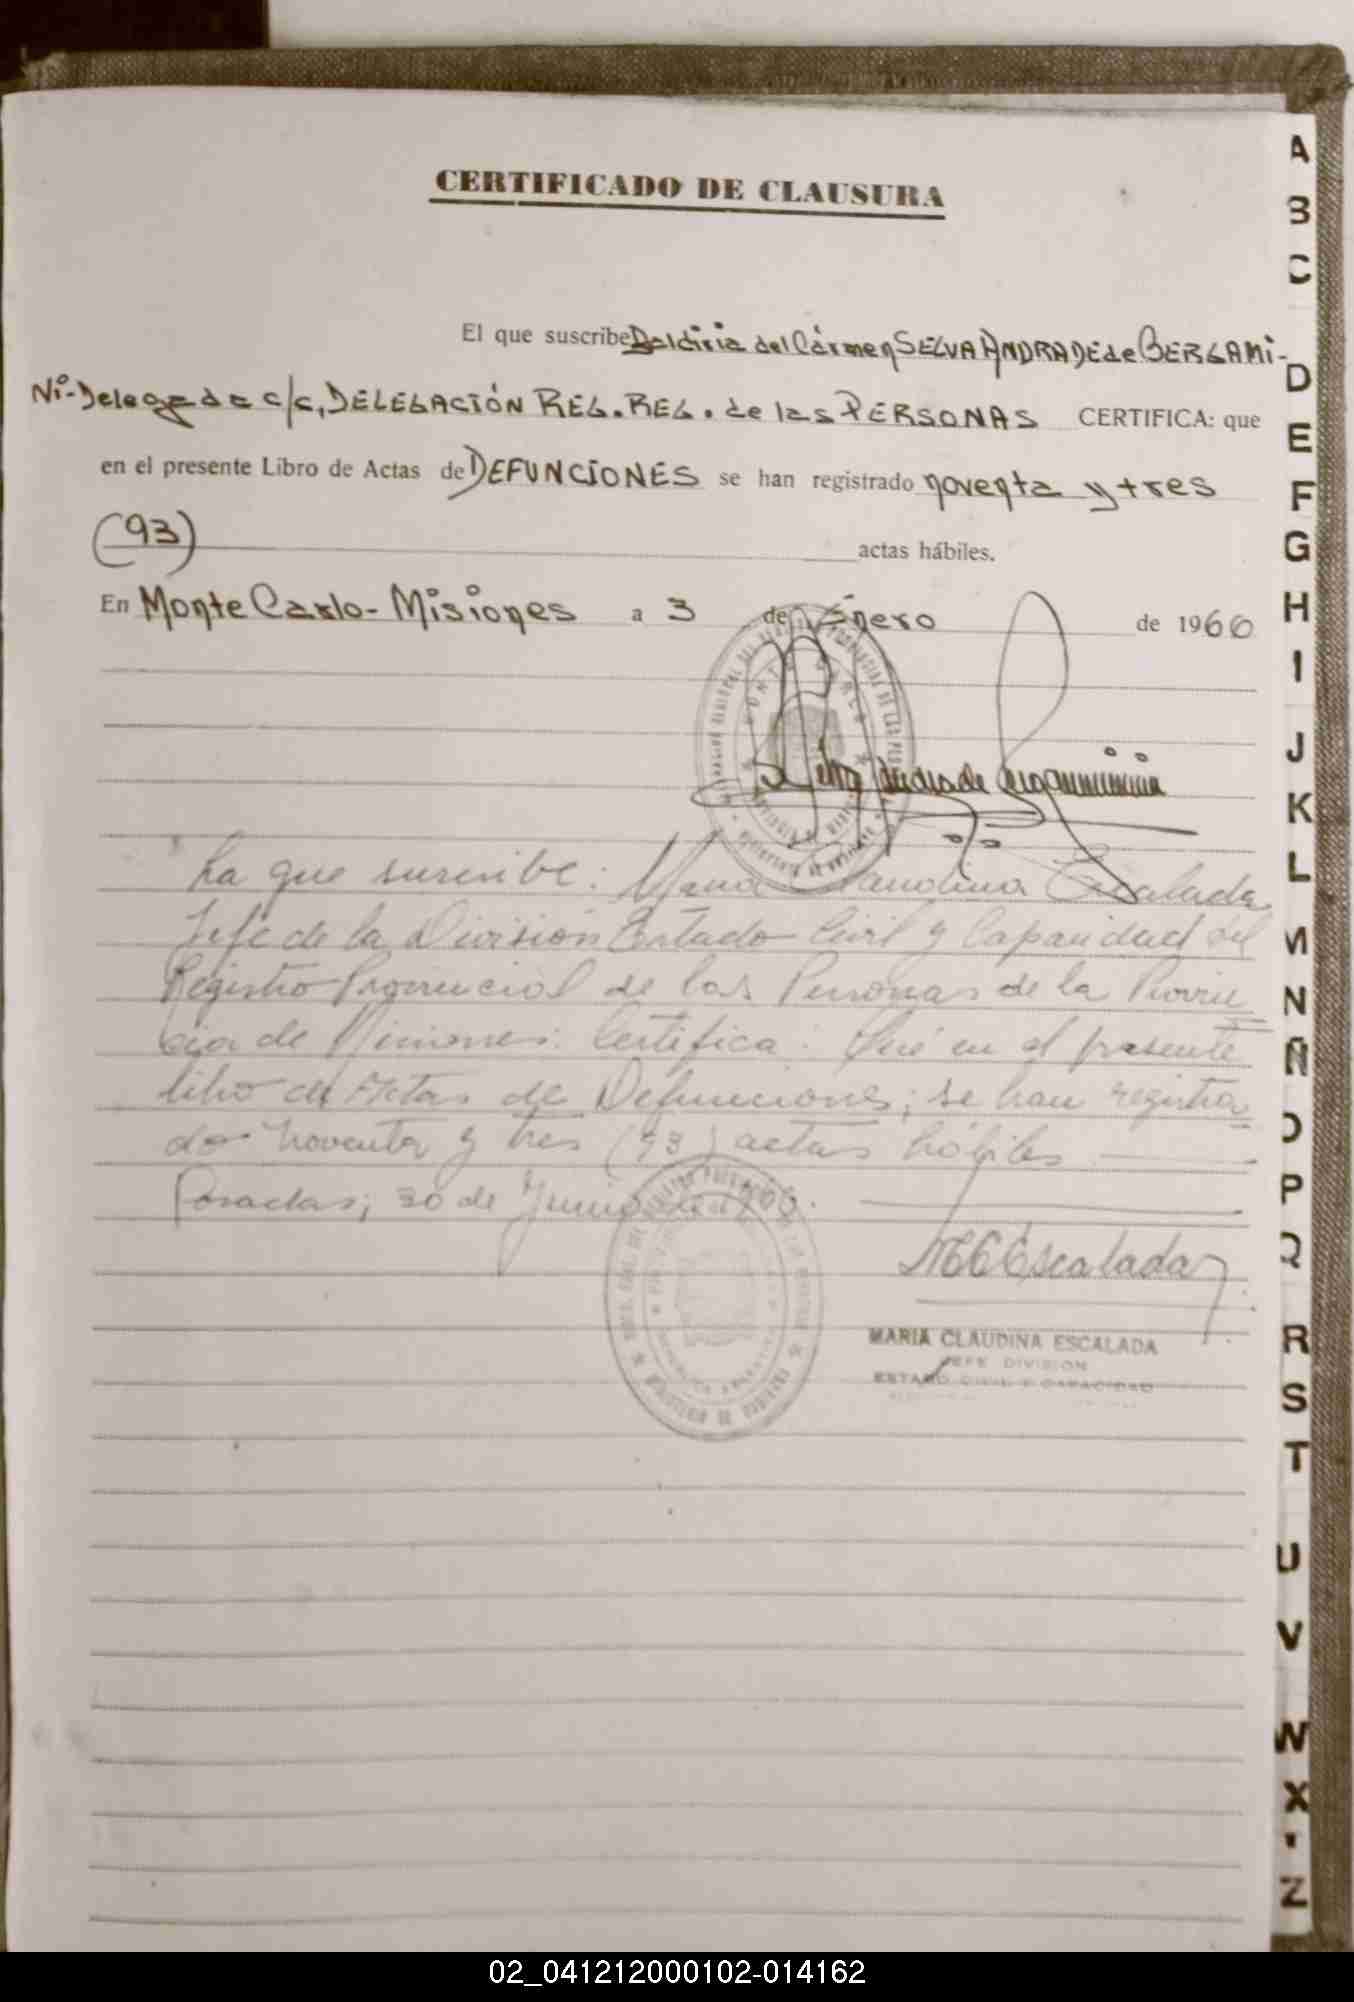 CERTIFICADO DE CLAUSURA
El que suscribe Baldiria del Cármen SELVA ANDRADE de BERGAMi-
Ni-Delegada c/c, DELEGACIÓN REG. REG. de las PERSONAS CERTIFICA: que
en el presente Libro de Actas de DEFUNCIONES se han registrado noventa y tres
(93) actas hábiles.
En Monte Carlo - Misiones a 3 de Enero de 1966
La que suscribe: Maria Claudina Escalada
Jefe de la División Estado Civil y Capacidad del
Registro Provincial de las Personas de la Provin
cia de Misiones: Certifica: Que en el presente
libro de Actas de Defunciones; se han registra
do noventa y tres (93) actas hábiles
Posadas; 30 de Junio de 1966.
MCEscalada
MARIA CLAUDINA ESCALADA
JEFE DIVISION
ESTADO CIVIL Y CAPACIDAD
A
B
C
D
E
F
G
H
I
J
K
L
M
N
Ñ
O
P
Q
R
S
T
U
V
W
X
Z
02_041212000102-014162